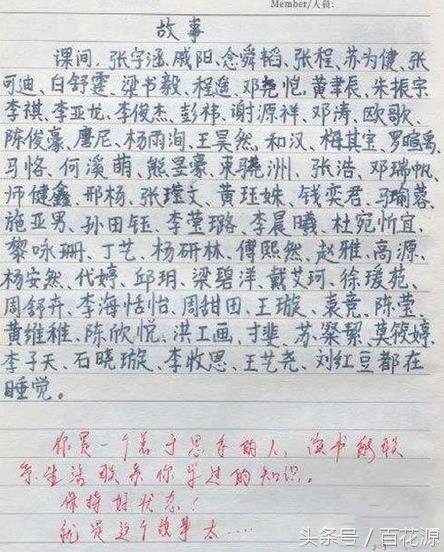 Member/人員:
故事
课间、张宇涵、戚阳、念舜韬、张程、苏为健、张
可迪、白舒霆、梁书毅、程遥、邓尧恺、黄聿辰、朱振宇
李祺、李亚龙、李俊杰、彭祎、谢源祥、邓涛、欧歌、
陈俊豪、唐尼、杨雨洵、王昊然、和汉、梅其宝、罗暄禹、
马恪、何溪萌、熊昱豪、束骁洲、张浩、邓瑞帆、
师健鑫、邢杨、张瑾文、黄珏姝、钱奕君、马瑜蓉、
施亚男、孙田钰、李莹璐、李晨曦、杜宛忻宜、
黎咏珊、丁艺、杨研林、傅熙然、赵雅、高源、
杨安然、代婷、邱玥、梁碧洋、戴艾珂、徐瑗苑、
周舒卉、李海怡怡、周甜田、王璇、袁竞、陈莹、
黄维稚、陈欣悦、洪工画、才斐、苏、莫筱婷、
李子天、石晓璇、李收思、王艺尧、刘红豆都在
睡觉。
你是一个善于思考的人，读书能联
系生活联系你学过的知识。
保持好状态！
就是这个故事太....
头条号 / 百花源